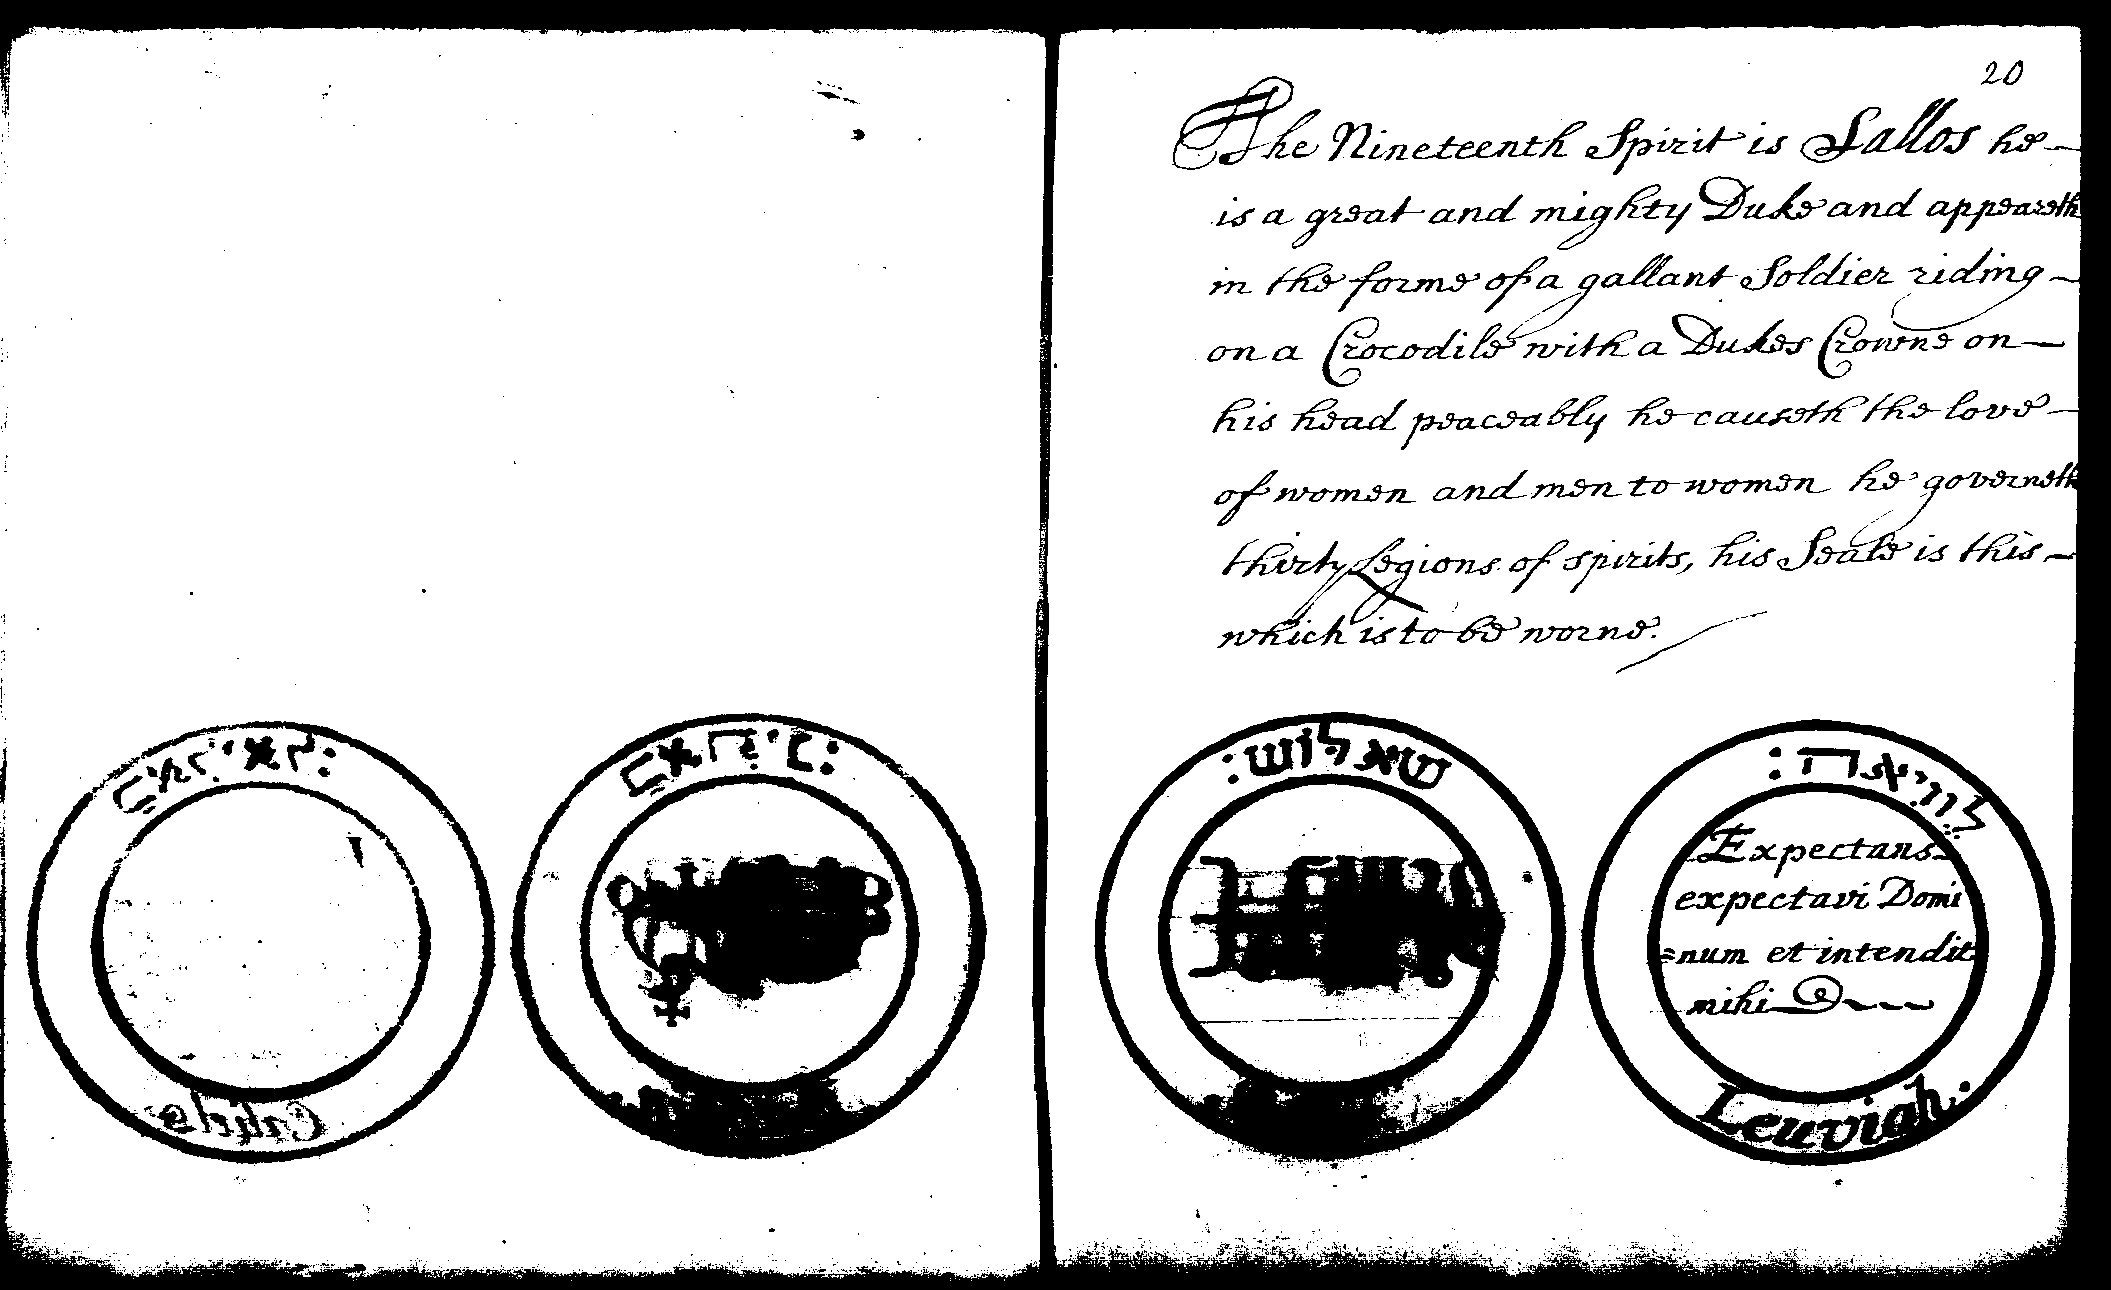 20
The Nineteenth Spirit is Sallos he
is a great and mighty Duke and appeareth
in the forme of a gallant Soldier riding
on a Crocodile with a Dukes Crowne on
his head peaceably he causeth the love
of women and men to women he governeth
thirty Legions of spirits, his Seale is this
which is to be worne.
שאלוש:
לוויאה:
Expectans
expectavi Domi
=num et intendit
mihi
Leuviah.